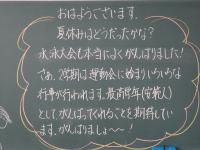 おはようございます。
夏休みはどうだったかな?
水泳大会も本当によくがんばりました!
さあ、2学期は運動会に始まりいろいろな
行事が行われます。最高学年(安養人)
としてがんばってくれることを期待してい
ます。がんばりましょ〜〜!